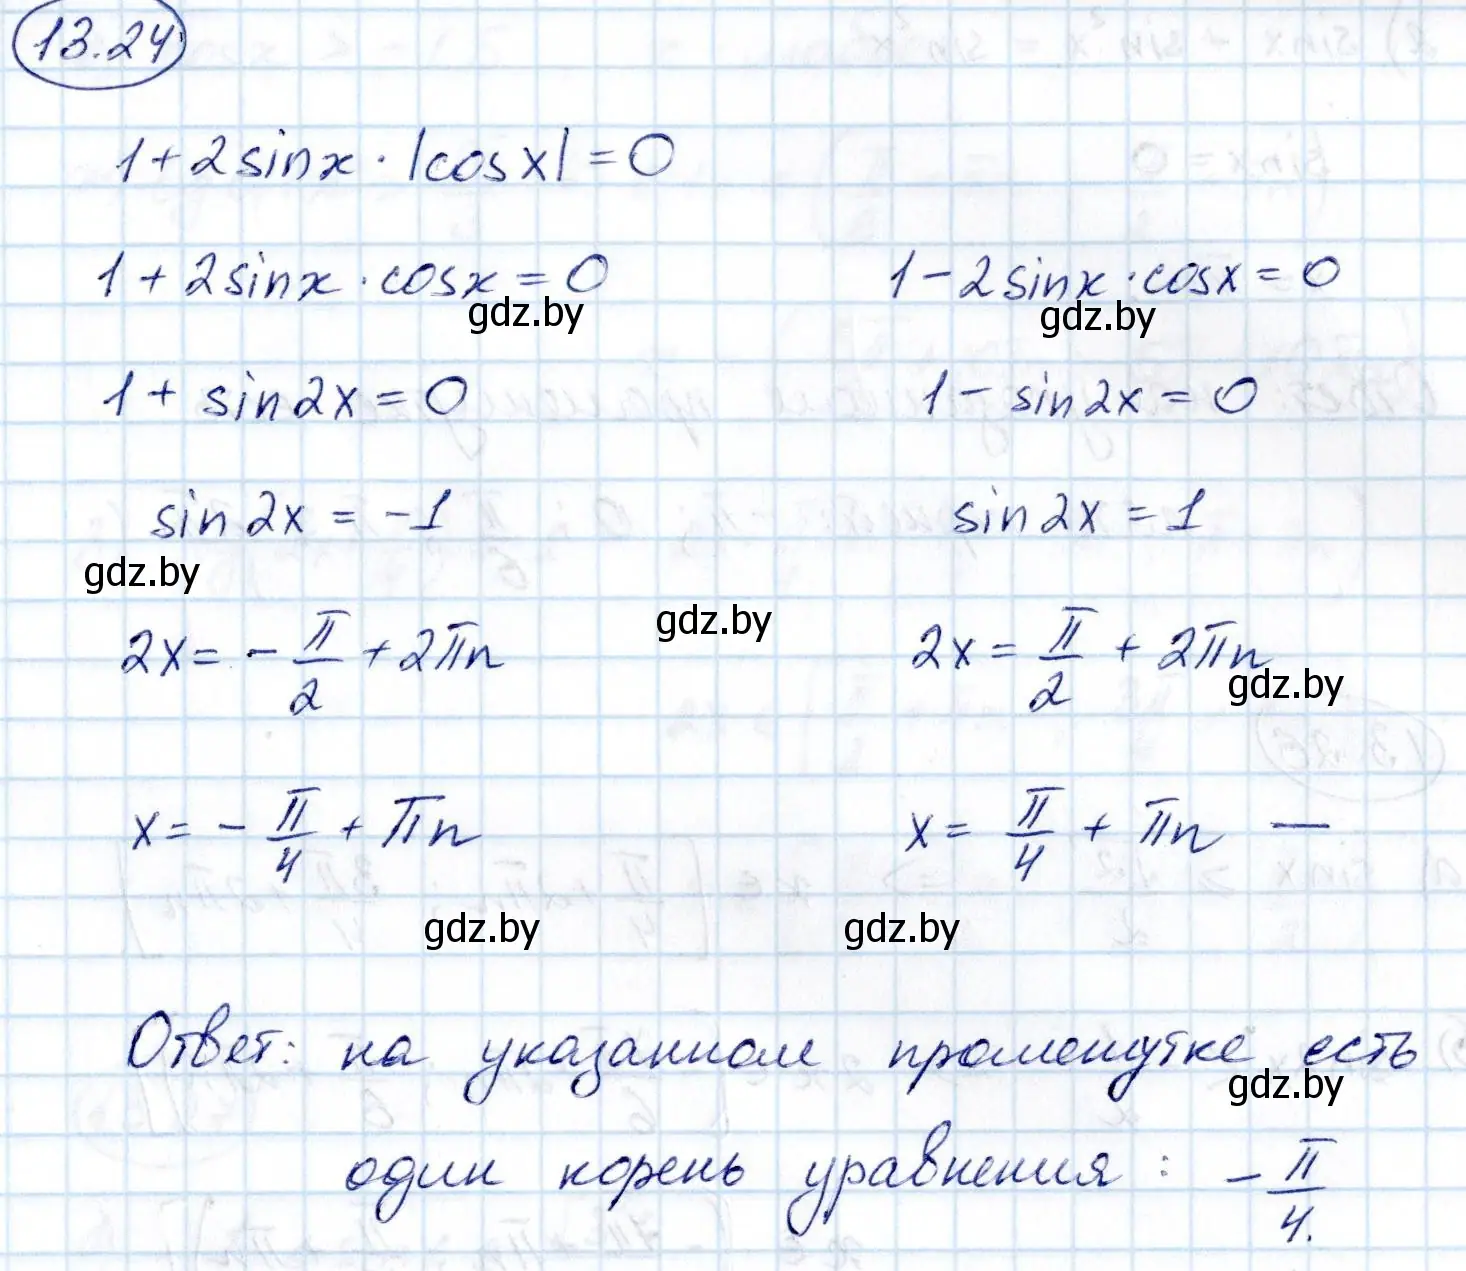 13.24
1+2sinx·|cosx|=0
1+2sinx·cosx=0 1-2sinx·cosx=0
gdz.by gdz.by
1+sin2x=0 1-sin2x=0
sin2x=-1 sin2x=1
gdz.by
2x=-π/2+2πn gdz.by 2x=π/2+2πn
gdz.by
x=-π/4+πn x=π/4+πn —
gdz.by gdz.by
Ответ: на указанном промежутке есть
gdz.by
один корень уравнения: -π/4.